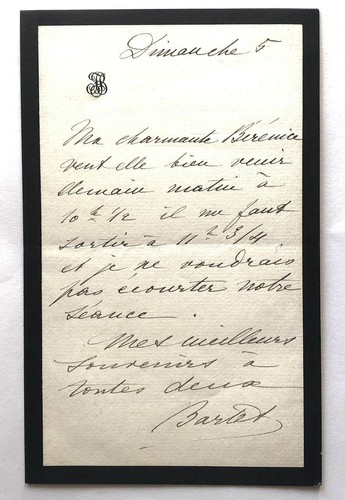 Dimanche 5
Ma charmante Bérénice
veut elle bien venir
demain matin à
10h 1/2 il me faut
sortir à 11h 3/4
et je ne voudrais
pas écourter notre
séance.
Mes meilleurs
souvenirs à
toutes deux
Bartet